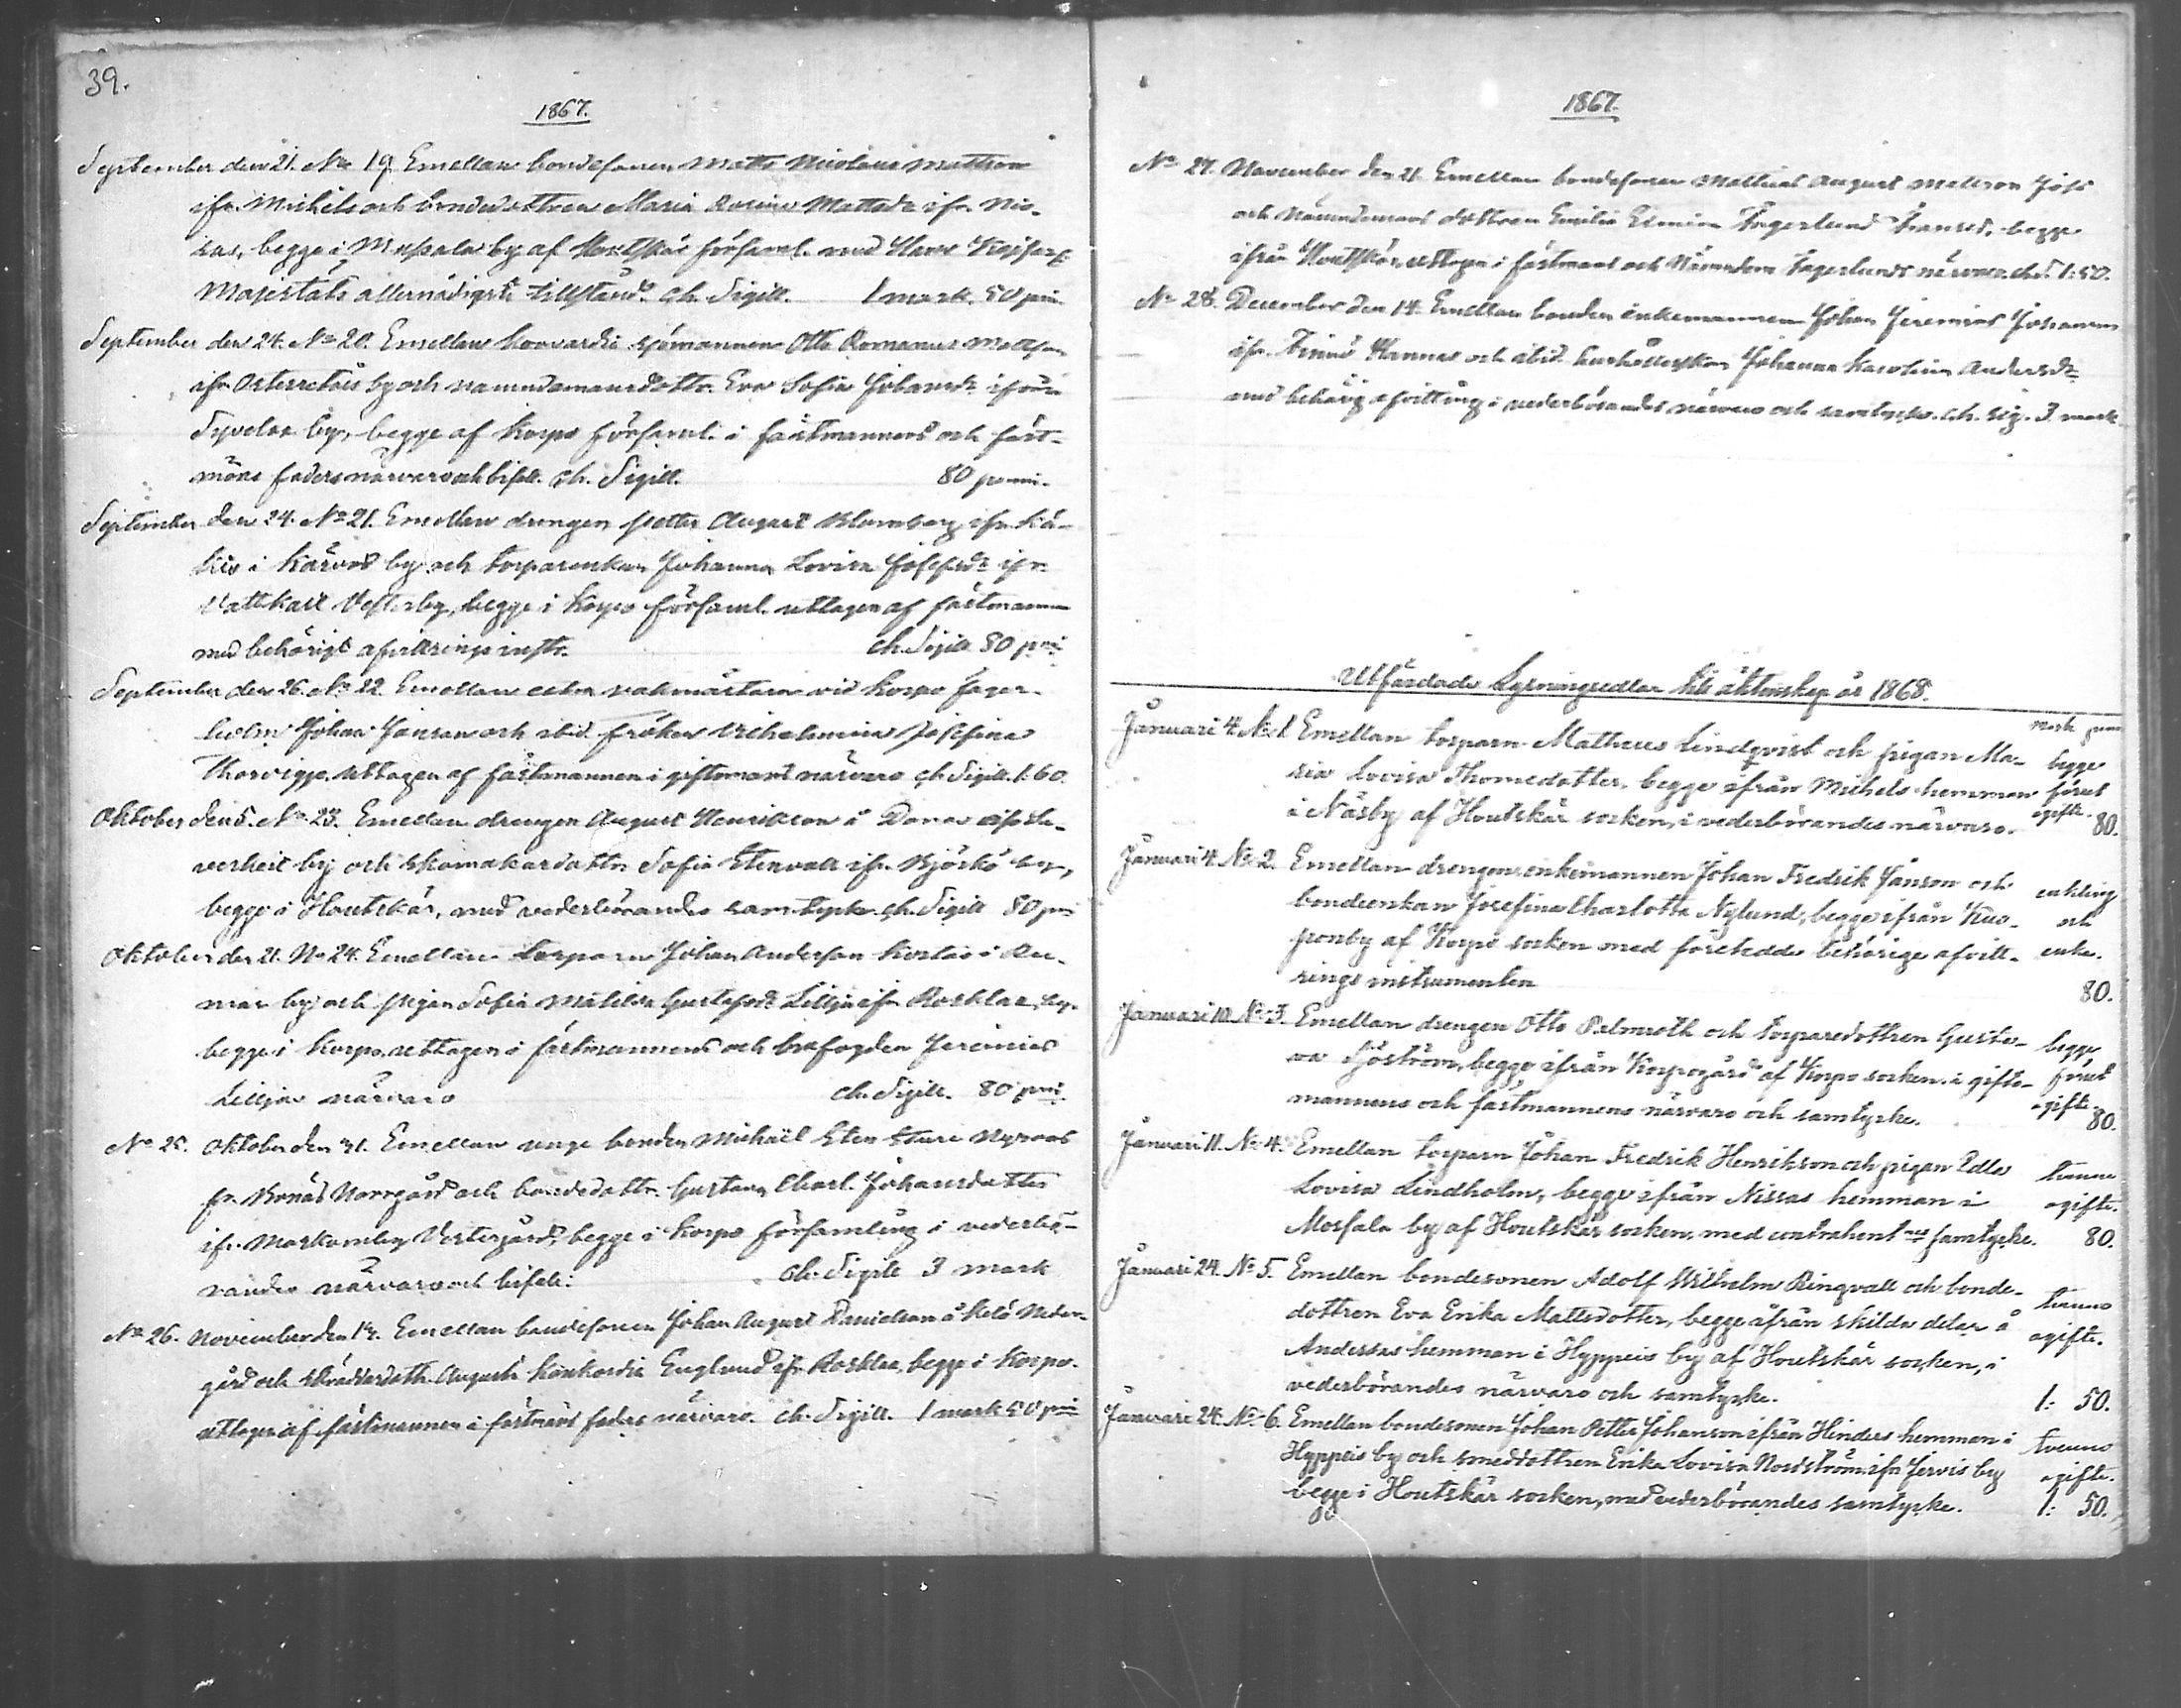 39.
1867.
September den 21. No 19. Emellan bondesonen Matts Nicolaus Mattson
ifr. Michels och bondedottren Maria Rosina Mattsdr ifr. Nis-
sas, begge i Mossala by af Houtskär församl. med Hans Kejserl.
Majestäts allernådigste tillstånd. ch. Sigill. 1 mark. 50 pni
September den 24. No 20. Emellan koovardie sjömannen Otto Romanus Mattson
ifr Österretais by och nämndemansdottr. Eva Sofia Johansdr ifrån
by, begge af Korpo församl. i fästmannens och fäst-
möns faders närvaro och bifall. ch. Sigill. 80 penni.
September den 24. No 21. Emellan drengen Petter August Blomberg ifr. Kä-
i Kärvois by och torparenkan Johanna Lovisa Josefsdr ifr.
Vattkast Vesterby, begge i Korpo församl. uttagen af fästmannen
med behörigt afvittrings instr. ch. Sigill 80 pni
September den 26. No 22. Emellan extra vakmästaren vid Korpo
Johan Janson och ibid. fröken Vilhelmina Josefina
uttagen af fästmannen i giftomans närvaro ch. Sigill. 1.60.
Oktober den 5. No 23. Emellan drengen August Henrikson å Donas ifr Sa-
verkeit by och skomakardottr. Sofia Stenvall ifr. Björkö by,
begge i Houtskär, med vederbörandes samtycke ch. Sigill 80 pni
Oktober den 21. No 24. Emellan torparen Johan Anderson i Ru-
mar by och pigan Sofia Matilda Gustafsdr Lillja ifr Rosklax by,
begge i Korpo, uttagen i fästmannens och brofogden Jeremias
Lilljas närvaro ch. Sigill. 80 pni
No 25. Oktober den 31. Emellan unge bonden Michaël Sten Sture Nyroos
fr. Norrgård och bondedottr. Gustava Charl. Johansdotter
ifr. Markomby Vestergård, begge i Korpo församling i vederbö-
randes närvaro och bifall: ch. Sigill 3 mark
No 26. November den 14. Emellan bondesonen Johan August Danielson å Kälö Neder-
gård och skräddardottr. Augusta Konkordia Englund ifr Rosklax, begge i Korpo.
uttagen af fästmannen i fästmös faders närvaro. ch. Sigill. 1 mark 50 pni
1867.
No 27. November den 21. Emellan bondesonen Mattias August Mattson
och Nämndemans dottren Emilia Elmina Fagerlund begge
ifrån Houtskär, uttagen i fästmans och Nämndem. Fagerlunds närvaro. ch. S. 1:50.
No 28. December den 14. Emellan bonden enkemannen Johan Jeremias Johanson
ifr. Finnö Hannas och ibid. hushållerskan Johanna Karolina Andersdr
med behörig afvittring i vederbörandes närvaro och samtycke. ch. sig. 3 mark
Utfärdade Lysningssedlar till äktenskap år 1868.
Mark penni
Januari 4. No 1. Emellan torparn Matheus Lindqvist och pigan Ma- begge
ria Lovisa Thomedotter, begge ifrån Michels hemman förut
i Näsby af Houtskär socken, i vederbörandes närvaro. ogifte. 80.
Januari 4. No 2. Emellan drengen, enkemannen Johan Fredrik Janson och enkling
bondeenkan Josefina Charlotta Nylund, begge ifrån Kuo- och
ponby af Korpo socken med företedde behörige afvitt- enka.
rings instrumenten 80.
Januari 10. No 3. Emellan drengen Otto Palmroth och torparedottren Gusta- begge
va Sjöström, begge ifrån Korpogård af Korpo socken i gifto- förut
mannens och fästmannens närvaro och samtycke. ogifte. 80.
Januari 11. No 4. Emellan torparn Johan Fredrik Henrikson och pigan Edla tvenne
Lovisa Lindholm, begge ifrån Nissas hemman i ogifte.
Mosfala by af Houtskär socken, med contrahenternes samtycke. 80.
Januari 24. No 5. Emellan bondesonen Adolf Wilhelm Ringvall och bonde- tvenne
dottren Eva Erika Mattsdotter, begge ifrån skilda delar å ogifte.
Anderssas hemman i Hyppeis by af Houtskär socken, i
vederbörandes närvaro och samtycke. 1: 50.
Januari 24. No 6. Emellan bondesonen Johan Petter Johanson ifrån Hinders hemman i tvenne
Hyppeis by och smeddottren Erika Lovisa Nordström ifr Jervis by ogifte.
begge i Houtskär socken, med vederbörandes samtycke. 1: 50.